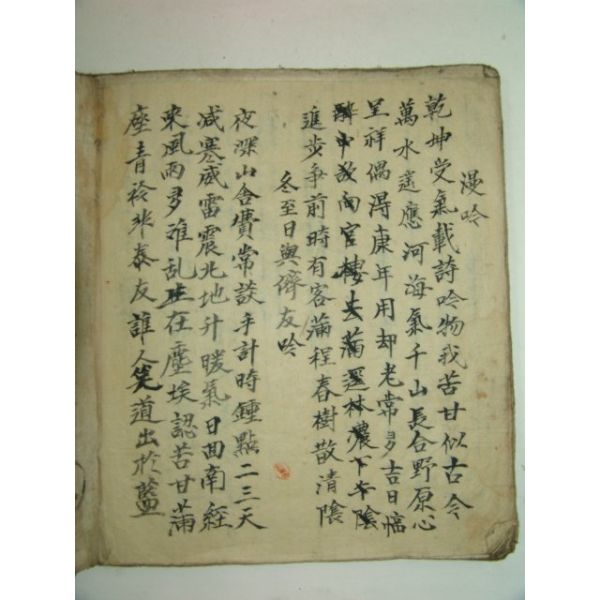 漫吟
乾坤受氣載詩吟物我苦甘似古今
萬水遙應河海氣千山長合野原心
呈祥偶得康年用却老常多吉日
中故向官樓去滿 林濃下午陰
進步爭前時有客滿程春樹散清陰
冬至日與儕友吟
夜深山舍費常談手計時鍾點二三天
减寒威雷震北地升暖氣日回南經
來風雨多 乱 在塵埃認苦甘滿
座青衿 泰友誰人笑道出於藍